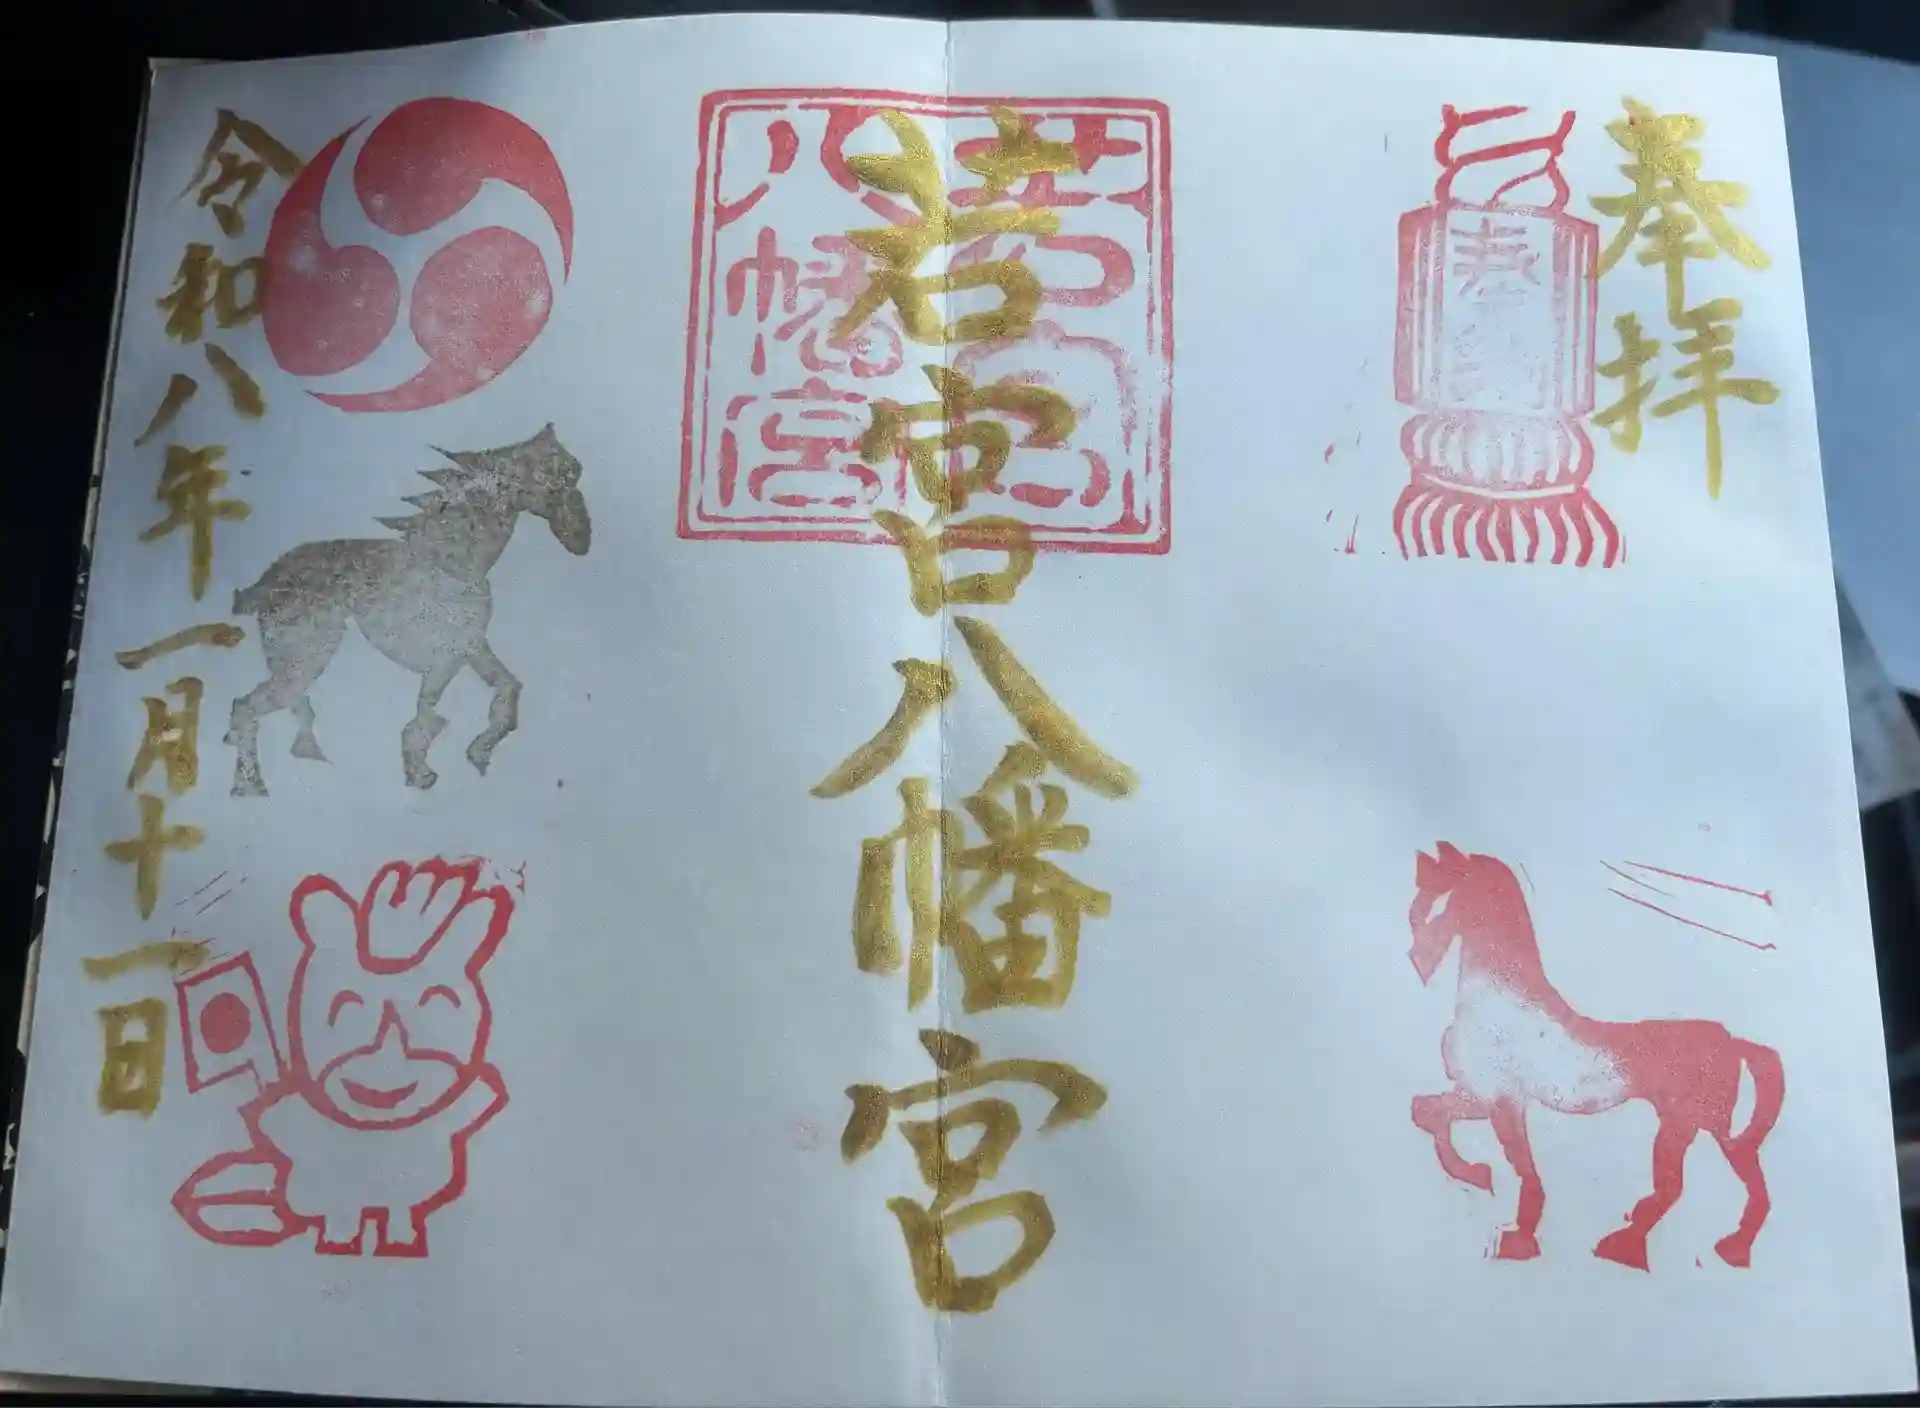 奉拝
奉
若宮八幡宮
若宮
八幡宮
令和八年一月十一日